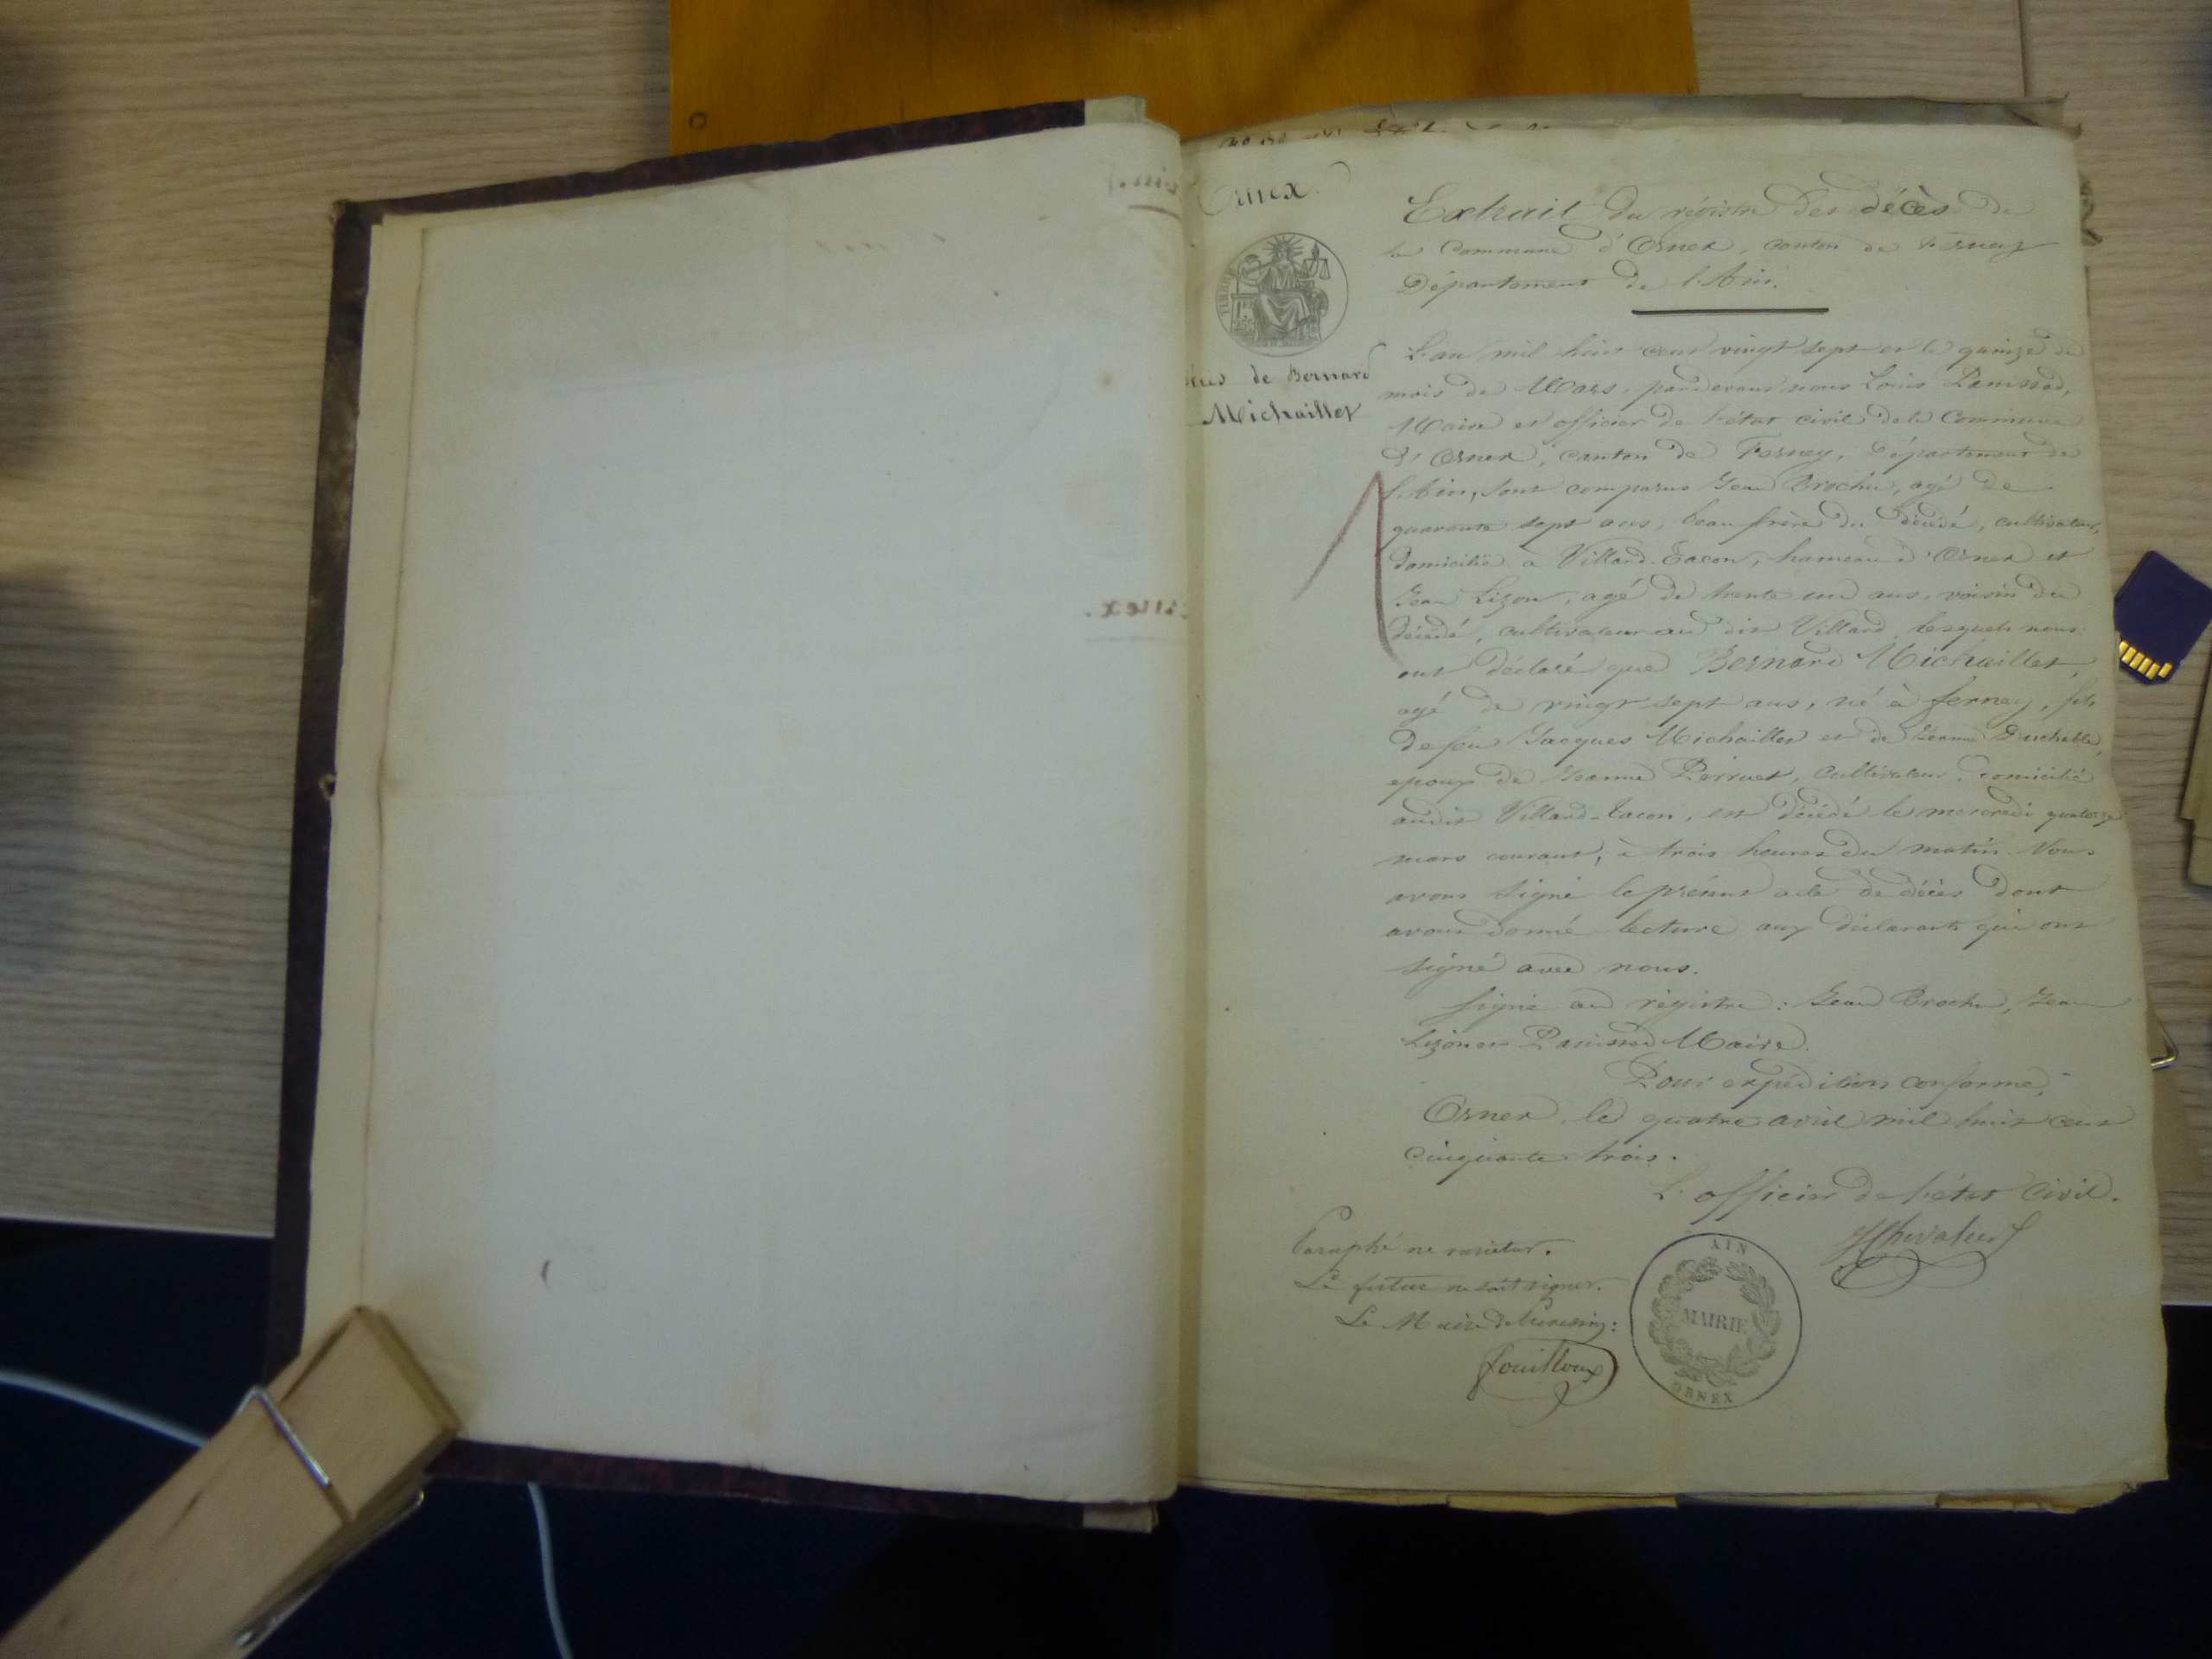 Ornex.
TIMBRE
Décès de Bernard
Michaillet
Extrait du régistre des décès de
la Commune d'Ornex, canton de Ferney
Département de l'Ain.
L'an mil huit cent vingt sept et le quinze du
mois de Mars, pardevant nous Louis Panissod,
Maire et officier de l'état civil de la Commune
d'Ornex, canton de Ferney, Département de
l'Ain, sont comparus Jean Brochu, agé de
quarante sept ans, beau frère du décédé, cultivateur,
domicilié à Villard-Tacon, hameau d'Ornex et
Jean Lizon, agé de trente un ans, voisin du
décédé, cultivateur au dit Villard, lesquels nous
ont déclaré que Bernard Michaillet,
agé de vingt sept ans, né à ferney, fils
de feu Jacques Michaillet et de Jeanne Duchable,
epoux de Jeanne Perruet, cultivateur, domicilié
audit Villard-tacon, est décédé le mercredi quatorze
mars courant, à trois heures du matin. Nous
avons signé le présent acte de décès dont
avons donné lecture aux déclarants qui ont
signé avec nous.
Signé au régistre : Jean Brochu, Jean
Lizon et Panissod Maire.
Pour expédition conforme,
Ornex, le quatre avril mil huit cent
cinquante trois.
L'officier de l'état Civil.
Chevalier
Paraphé ne varietur.
Le futur ne sait signer.
Le Maire de
Fouilloux
AIN
MAIRIE
ORNEX